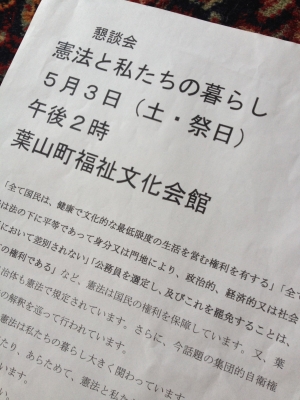 懇談会
憲法と私たちの暮らし
5月3日（土・祭日）
午後2時
葉山町福祉文化会館
「全て国民は、健康で文化的な最低限度の生活を営む権利を有する」「全て
は法の下に平等であって身分又は門地により、政治的、経済的又は社会
において差別されない」「公務員を選定し、及びこれを罷免することは、
の権利である」など、憲法は国民の権利を保障しています。さらに、又、葉
治体も憲法で規定されています。さらに、今話題の集団的自衛権
の解釈を巡って行われています。
憲法は私たちの暮らし大きく関わっています。
たり、あらためて、憲法と私た
います。